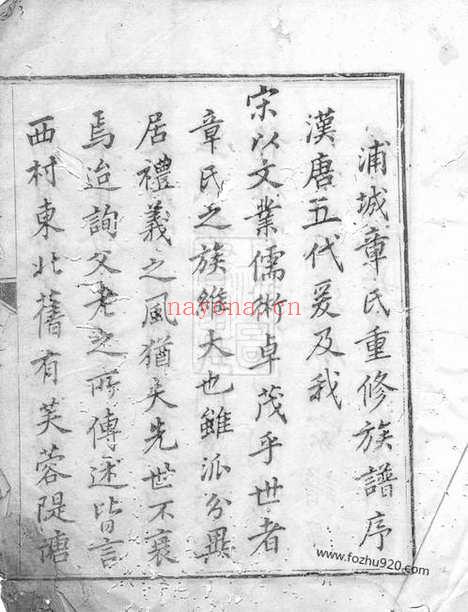 浦城章氏重修族譜序
漢唐五代爰及我
宋以文業儒術卓茂乎世者
章氏之族維大也雖派分異
居禮義之風猶夫先世不衰
焉迨詢父老之所傳述皆言
西村東北舊有芙蓉隄溏
nayona.cn
www.fozhu920.com